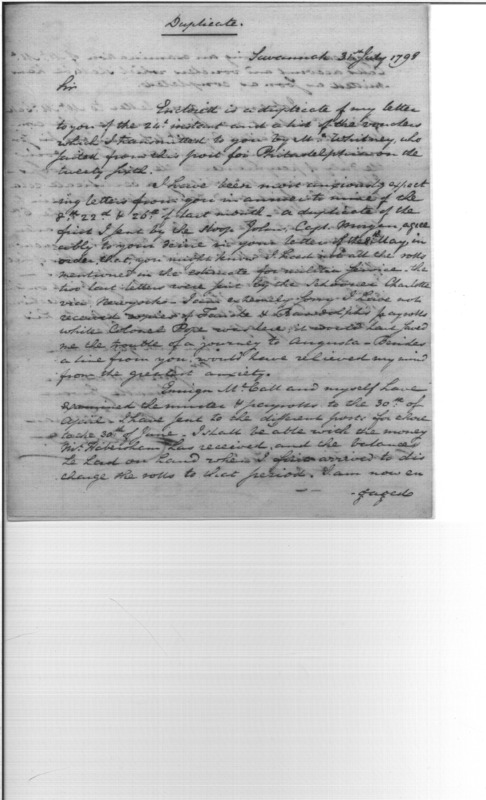 Duplicate.
Savannah 31st July 1798
Sir
Enclosed is a duplicate of my letter
to you of the 24th instant and a list of the vouchers
which I transmitted to you by Mr. Whitney, who
sailed from this port for Philadelphia on the
twenty sixth.
I have been most anxiously expect
ing letters from you in answer to mine of the
8th 22d & 26th of last month. a duplicate of the
first I sent by the Sloop John, Capt. agree
ably to your desire in your letter of the May, in
order that you might know I had not all the rolls
mentioned in the estimate for militia service. the
two last letters were sent by the Schooner Charlotte
via Newyork. I am extremely sorry I had not
received copies of & Randolphs payrolls
while Colonel Pope was here, it would have saved
me the trouble of a journey to Augusta. Besides
a line from you, would have relieved my mind
from the greatest anxiety.
Ensign McCall and myself have
examined the muster & payrolls to the 30th of
April. I have sent to the different posts for more
to the 30th of June. I shall be able with the money
Mr. Habersham has received, and the balance
he had on hand when I first arrived to dis
charge the rolls to that period. I am now en
-gaged